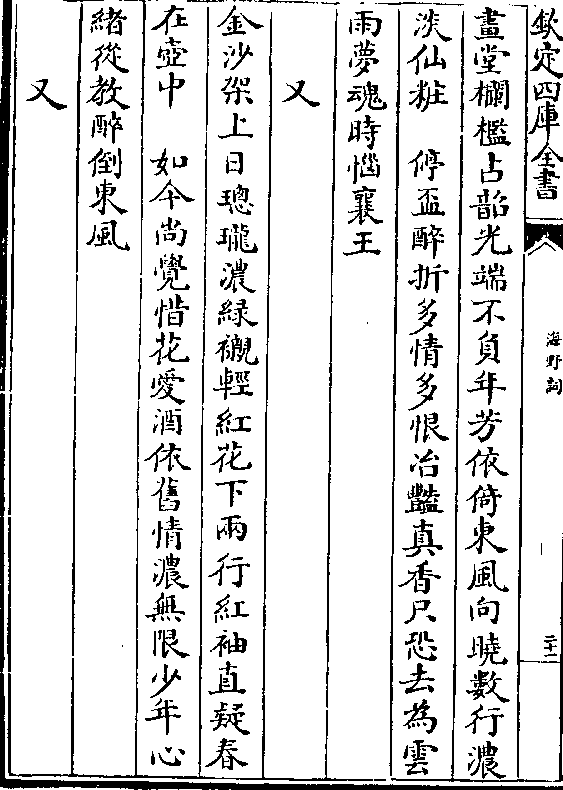 欽定四庫全書
海野詞
二十二
畫堂欄檻占韶光端不負年芳依倚東風向曉數行濃
淡仙粧　停盃醉折多情多恨冶豔真香只恐去為雲
雨夢魂時惱襄王
又
金沙架上日璁瓏濃緑襯輕紅花下兩行紅袖直疑春
在壺中　如今尚覺惜花愛酒依舊情濃無限少年心
緒從教醉倒東風
又